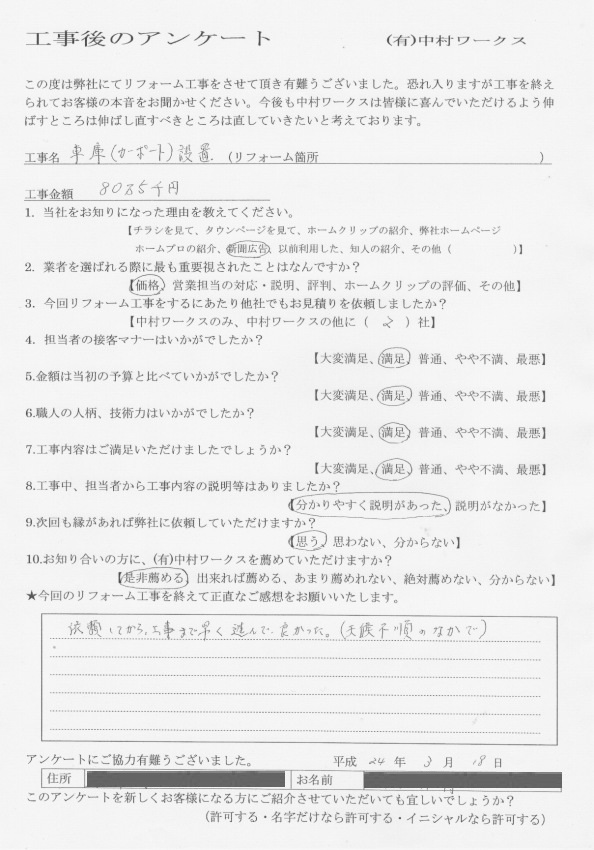 工事後のアンケート (有)中村ワークス
この度は弊社にてリフォーム工事をさせて頂き有難うございました。恐れ入りますが工事を終え
られてお客様の本音をお聞かせください。今後も中村ワークスは皆様に喜んでいただけるよう伸
ばすところは伸ばし直すべきところは直していきたいと考えております。
工事名 車庫(カーポート)設置. (リフォーム箇所 )
工事金額 8085千円
1. 当社をお知りになった理由を教えてください。
【チラシを見て、タウンページを見て、ホームクリップの紹介、弊社ホームページ
ホームプロの紹介、新聞広告、以前利用した、知人の紹介、その他( )】
2. 業者を選ばれる際に最も重要視されたことはなんですか?
【価格、営業担当の対応・説明、評判、ホームクリップの評価、その他】
3. 今回リフォーム工事をするにあたり他社でもお見積りを依頼しましたか?
【中村ワークスのみ、中村ワークスの他に( 2 )社】
4. 担当者の接客マナーはいかがでしたか?
【大変満足、満足、普通、やや不満、最悪】
5.金額は当初の予算と比べていかがでしたか?
【大変満足、満足、普通、やや不満、最悪】
6.職人の人柄、技術力はいかがでしたか?
【大変満足、満足、普通、やや不満、最悪】
7.工事内容はご満足いただけましたでしょうか?
【大変満足、満足、普通、やや不満、最悪】
8.工事中、担当者から工事内容の説明等はありましたか?
【分かりやすく説明があった、説明がなかった】
9.次回も縁があれば弊社に依頼していただけますか?
【思う、思わない、分からない】
10.お知り合いの方に、(有)中村ワークスを薦めていただけますか?
【是非薦める、出来れば薦める、あまり薦めれない、絶対薦めない、分からない】
★今回のリフォーム工事を終えて正直なご感想をお願いいたします。
依頼してから,工事まで早く進んで.良かった。(天候不順のなかで)
アンケートにご協力有難うございました。 平成 24 年 3 月 18 日
住所 お名前
このアンケートを新しくお客様になる方にご紹介させていただいても宜しいでしょうか?
(許可する・名字だけなら許可する・イニシャルなら許可する)